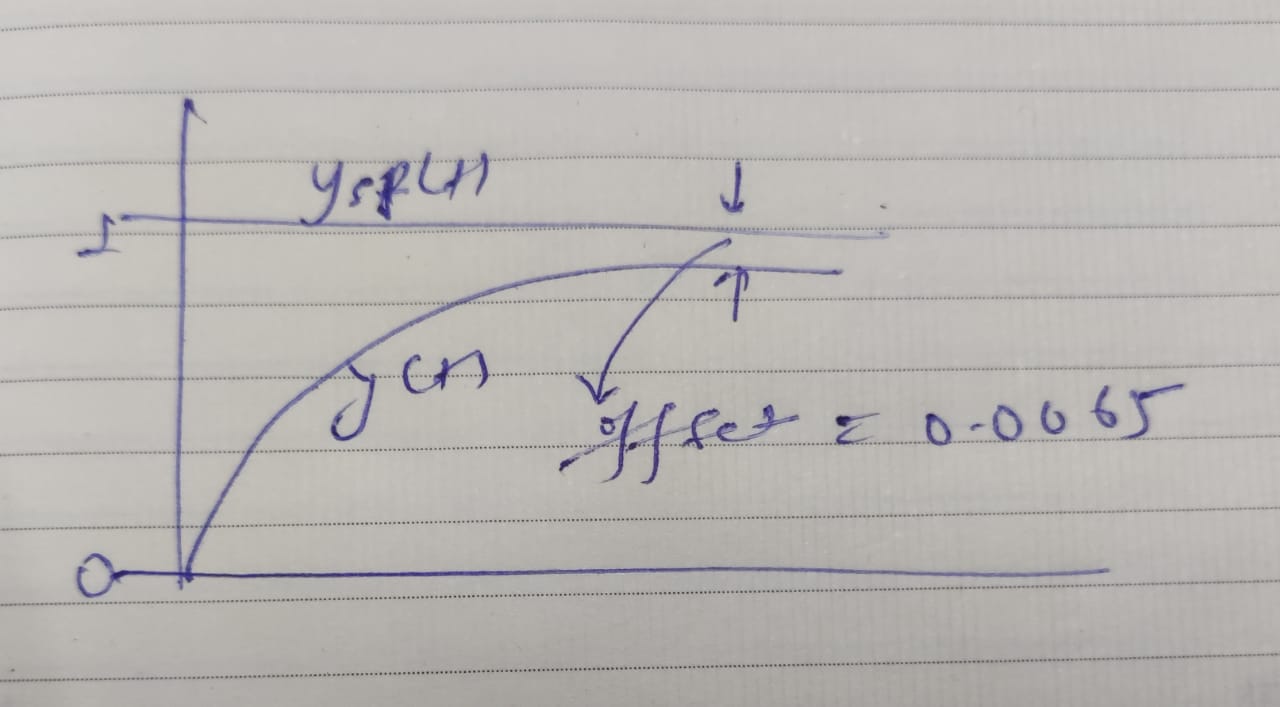 ysp(t)
1
y(t)
offset = 0.0065
0